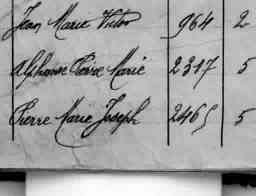 Jean Marie Victor 964 2
Alphonse Pierre Marie 2317 5
Pierre Marie Joseph 2465 5